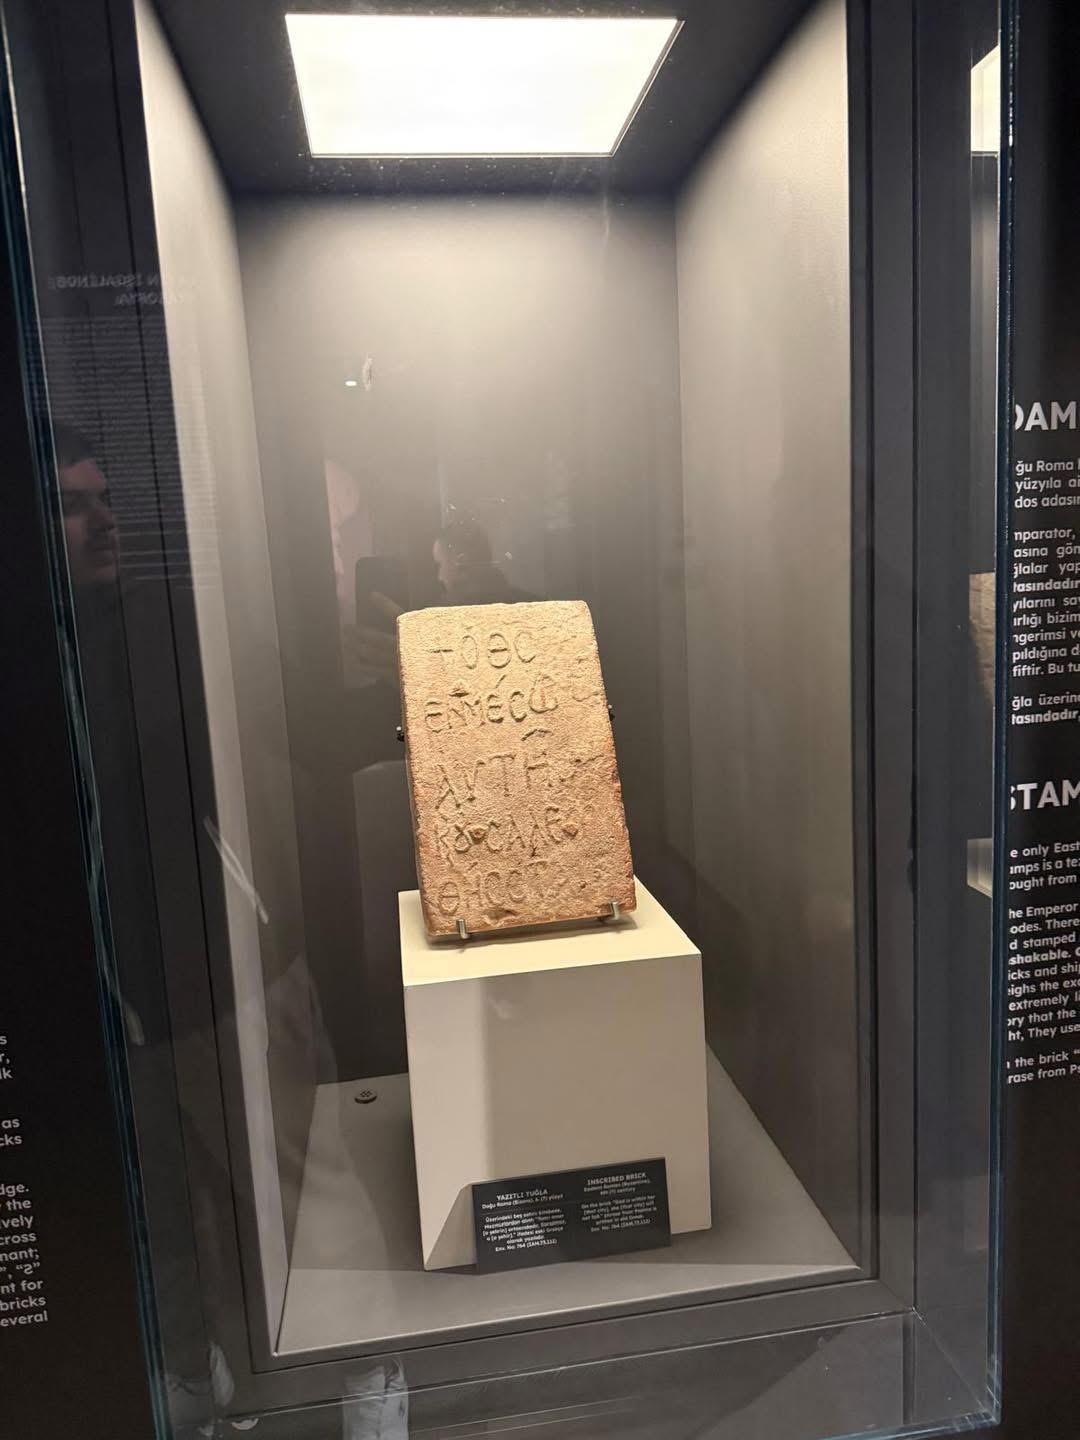 + Ὁ ΘC
ΕΝ ΜΕCΩ
ΑΥΤΗ
Κ ΟΥ CΑΛΕ
ΘΗCΕΤ
YAZITLI TUĞLA
Doğu Roma (Bizans), 6. (?) yüzyıl
Üzerindeki beş satırlı kitabede,
Mezmurlardan alıntı "Tanrı onun
[o şehrin] ortasındadır, Sarsılmaz,
o [o şehir]." ifadesi eski Grekçe
olarak yazılıdır.
Env. No: 764 (SAM.73.112)
INSCRIBED BRICK
Eastern Roman (Byzantine),
6th (?) century
On the brick "God is within her
[that city], she [that city] will
not fall." phrase from Psalms is
written in old Greek.
Env. No: 764 (SAM.73.112)
DAM
ğu Roma
yüzyıla ai
dos adasın
mparator,
asına gön
ğlalar yap
tasındadır
yılarını sa
ırlığı bizim
ngerimsi v
pıldığına d
fiftir. Bu tu
ğla üzerin
tasındadır,
STAM
e only East
amps is a te
ought from
he Emperor
odes. There
d stamped
shakable.
icks and ship
eighs the exa
extremely li
ory that the
ht, They use
n the brick "
rase from Ps
s
r,
lk
as
cks
dge.
the
ively
cross
nant;
", "2"
nt for
bricks
everal